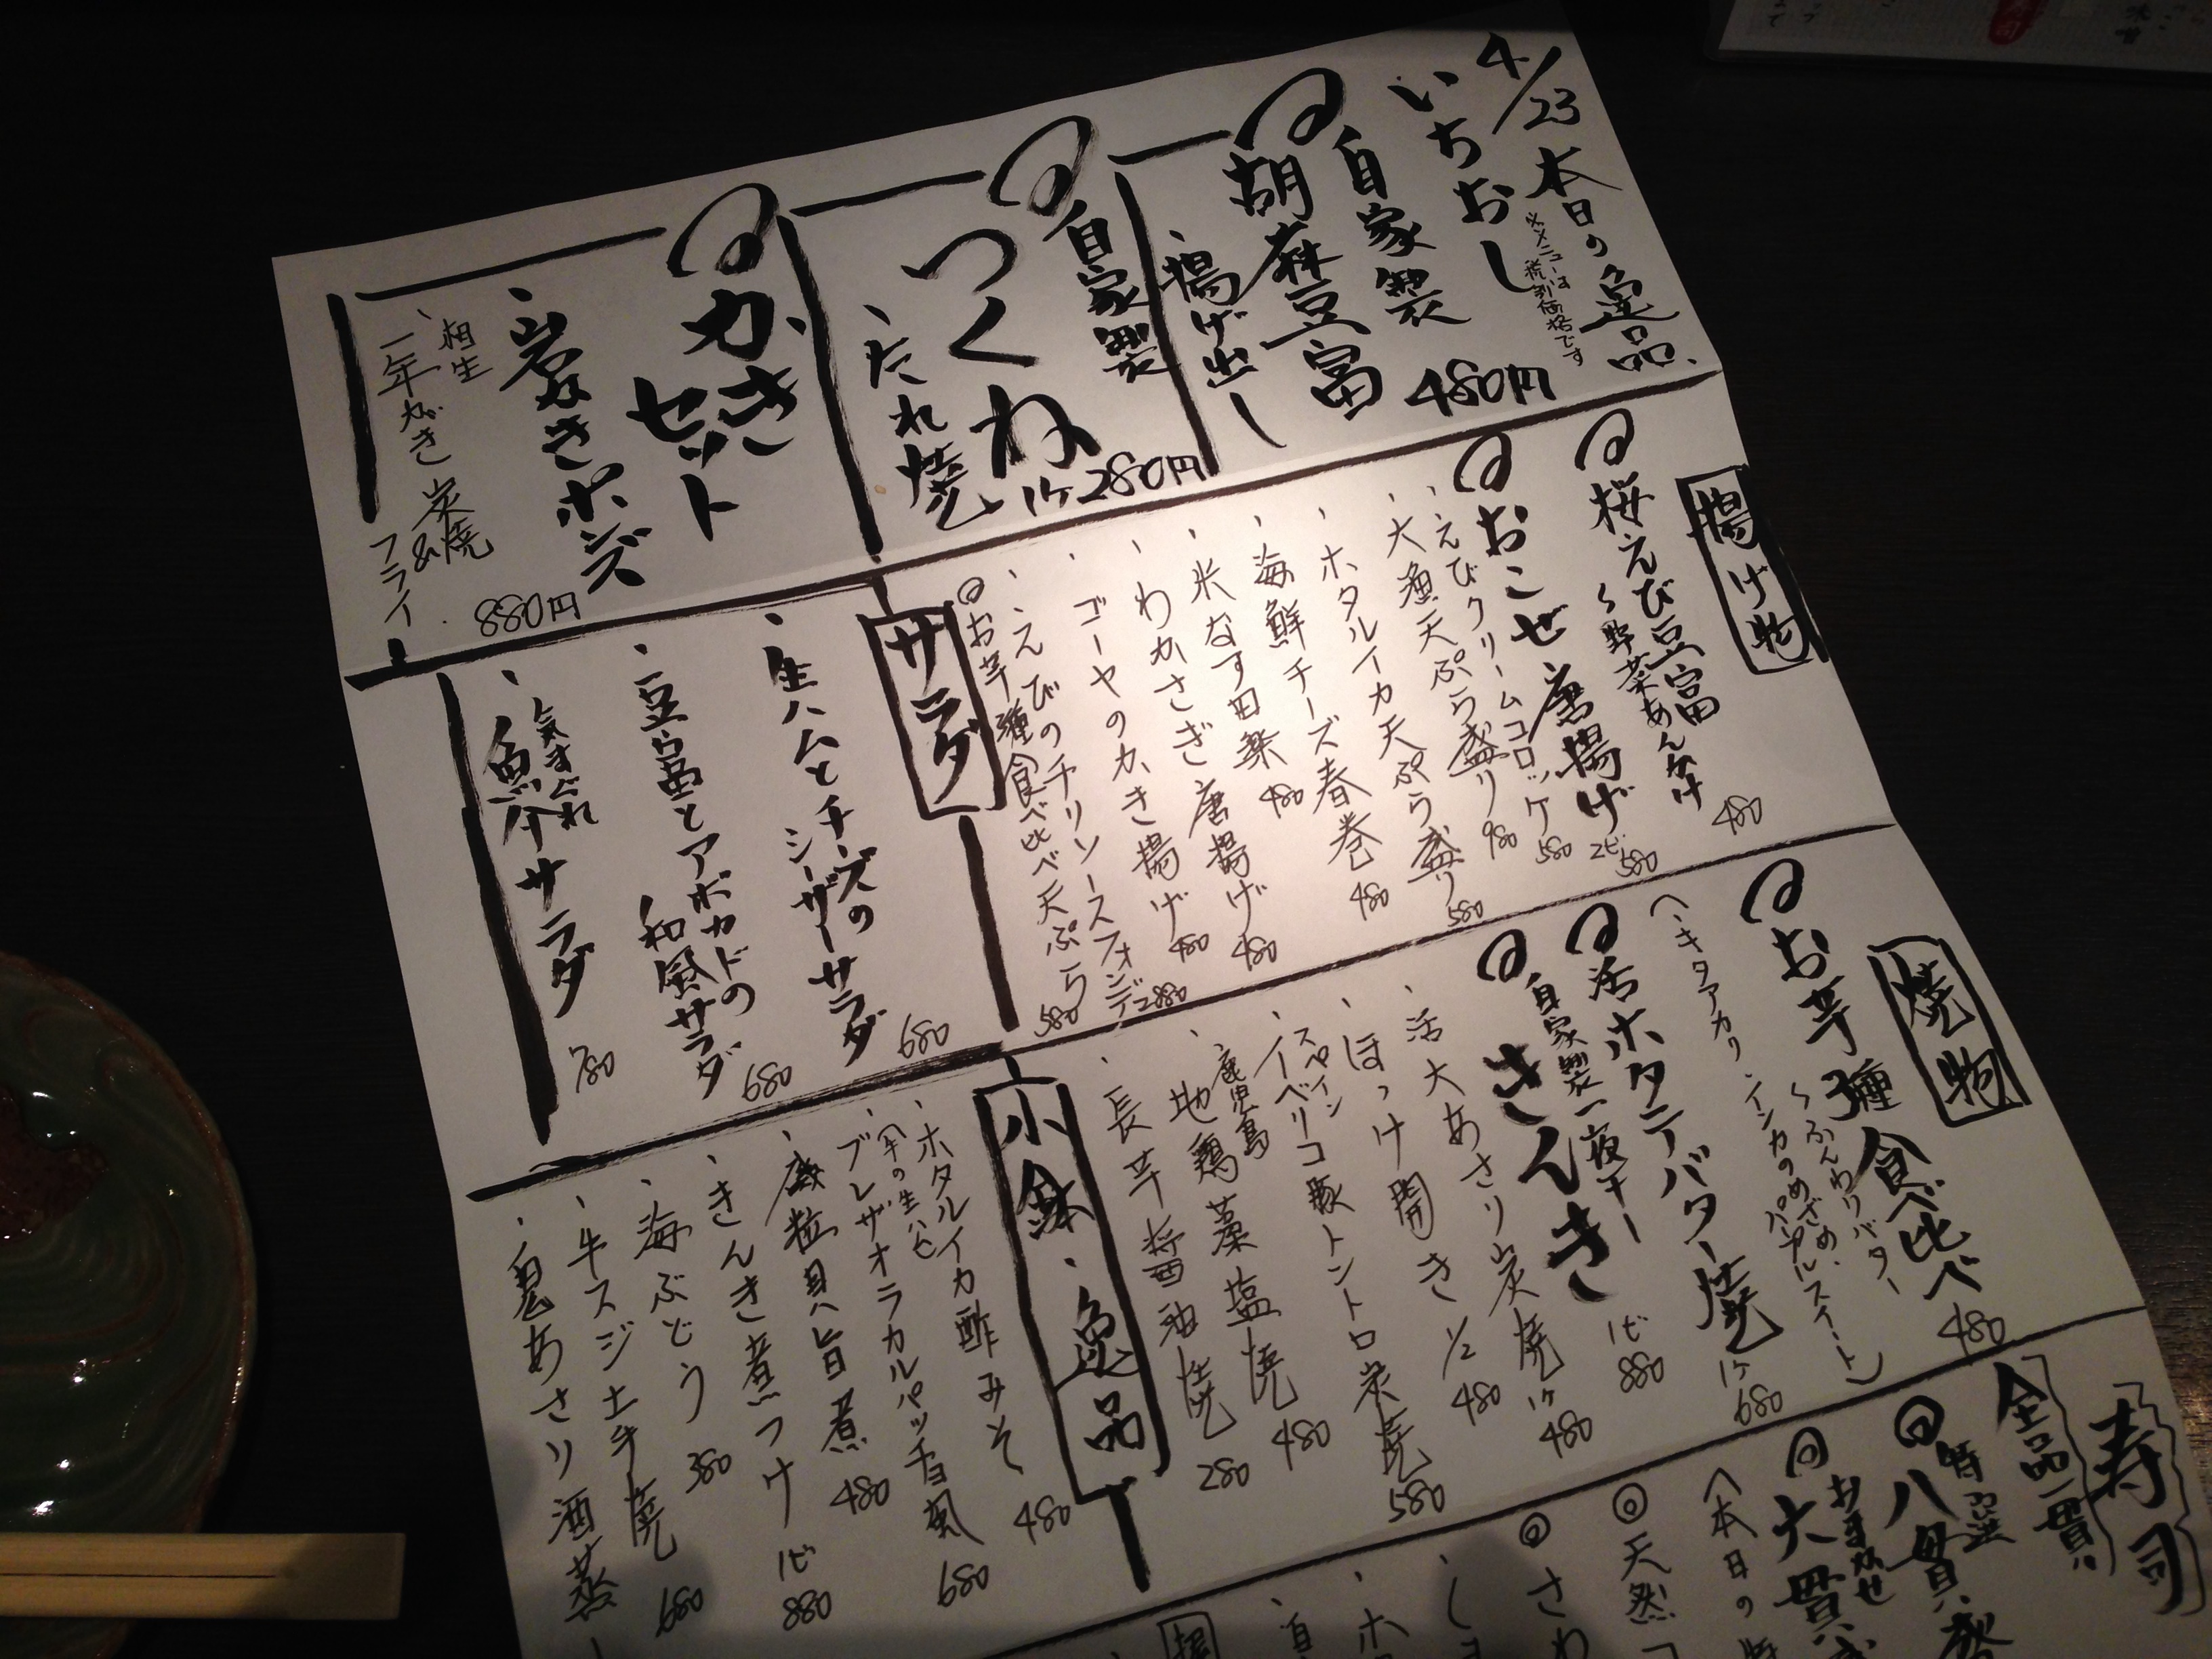 4/23 本日の逸品
※メニューは税別価格です
いちおし
自家製
胡麻豆富
480円
、揚げ出し
自家製
つくね
1ケ280円
、たれ焼
かき
セット
、岩がきポン酢
相生
、一年がき炭焼
&フライ
880円
揚げ物
桜えび豆富
～野菜あんかけ 480
おこぜ唐揚げ 2ピ580
、えびクリームコロッケ 580
、大漁天ぷら盛り 980
、ホタルイカ天ぷら盛り 580
、海鮮チーズ春巻 480
、米なす田楽 480
、わかさぎ唐揚げ 480
、ゴーヤのかき揚げ 480
、えびのチリソースフォンデュ 880
お芋3種食べ比べ天ぷら 580
サラダ
、生ハムとチーズの
シーザーサラダ 680
、豆富とアボカドの
和風サラダ 680
、気まぐれ
魚介サラダ 780
焼物
お芋3種食べ比べ 480
～ふんわりバター
(、キタアカリ、インカのめざめ、パープルスイート)
活ホタテバター焼 1ケ680
自家製一夜干し
きんき 1ピ880
、活大あさり炭焼 1ケ480
、ほっけ開き 1/2 480
スペイン
、イベリコ豚トントロ炭焼 580
鹿児島
、地鶏藁塩焼 480
、長芋醤油焼 280
小鉢、逸品
、ホタルイカ酢みそ 480
(牛の生ハム)
、ブレザオラカルパッチョ風 680
、磯粒貝旨煮 480
、きんき煮つけ 1ピ880
、海ぶどう 380
、牛スジ土手焼 680
、白あさり酒蒸し
寿司
全品一貫
特選
八貫
おまかせ
六貫
(本日の
天然
さわ